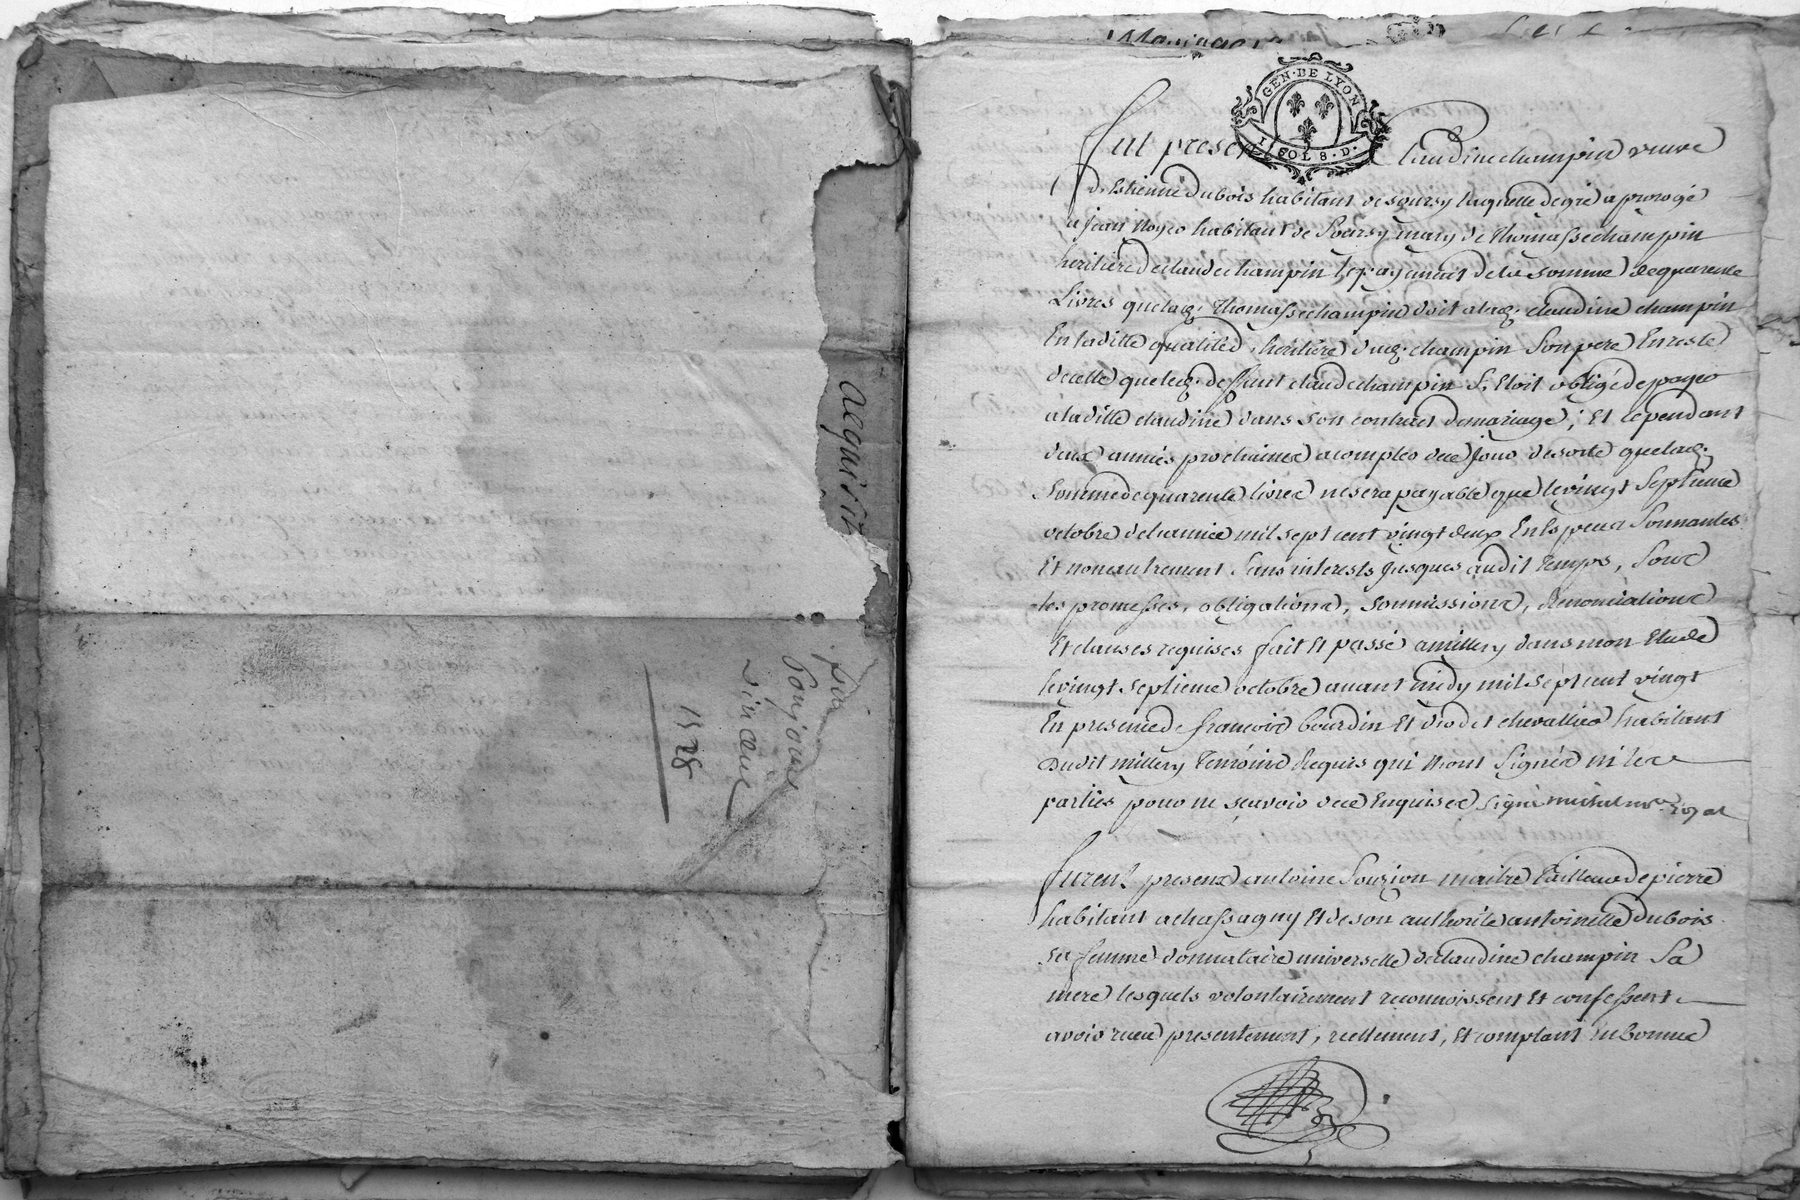 acquisit
Bonjour
1528
Mariage
GEN · DE LYON
1 SOL 8 · D ·
fut presente Claudine champin veuve
d'Estienne Dubois habitant de soursy laquelle de gré a prorogé
a jean Noyer habitant de Soursy mary de Thomasse champin
heritiere de claude champin le payement de la somme de quarente
Livres que lad. Thomasse champin doit a lad. claudine champin
En laditte qualité d'heritiere dud. champin Son pere En reste
de celle que led. deffunt claude champin S'Etoit obligé de payer
a laditte claudine dans son contract de mariage; Et cependant
deux années prochaines a compter de ce Jour de sorte que lad.
Somme de quarente livres ne sera payable que le vingt Septieme
octobre de l'année mil sept cent vingt deux En Especes Sonnantes
Et non autrement Sans interests Jusques audit temps, Sous
les promesses, obligations, Soumissions, Renonciations
Et clauses requises fait Et passé a millery dans mon Etude
le vingt Septieme octobre avant midy mil Sept cent vingt
En presence de francois bourdin Et chevallier habitant
dudit millery Temoins Requis qui n'ont Signés ni les
parties pour ne scavoir de ce Enquises Signé michel nore royal
furent presens antoine Souzion maitre tailleur de pierre
habitant a chassagny Et de son authorité antoinette Dubois
sa femme donnataire universelle de claudine champin Sa
mere lesquels volontairement reconnoissent Et confessent
avoir receu presentement, reellement, Et comptant En bonnes